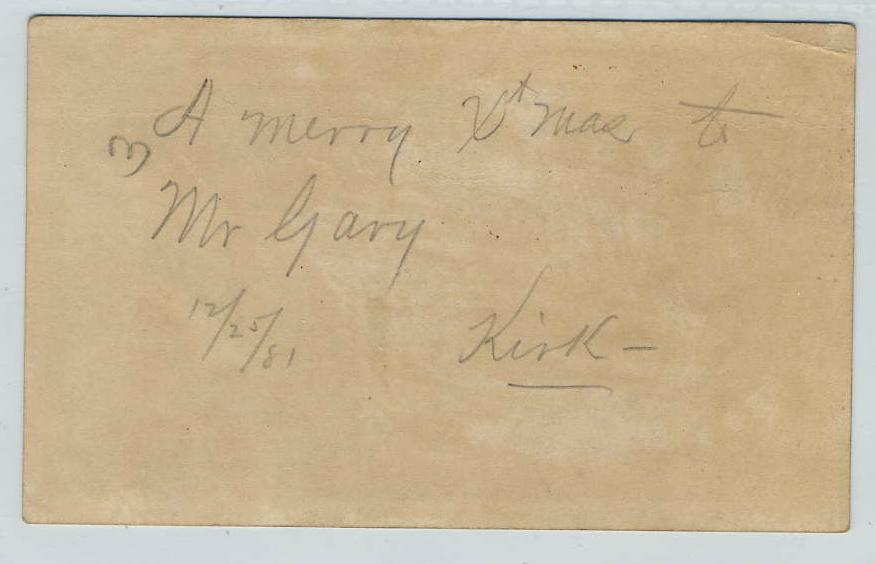 A merry Xt mas to
3
Mr Gary
12/25/81 Kirk –